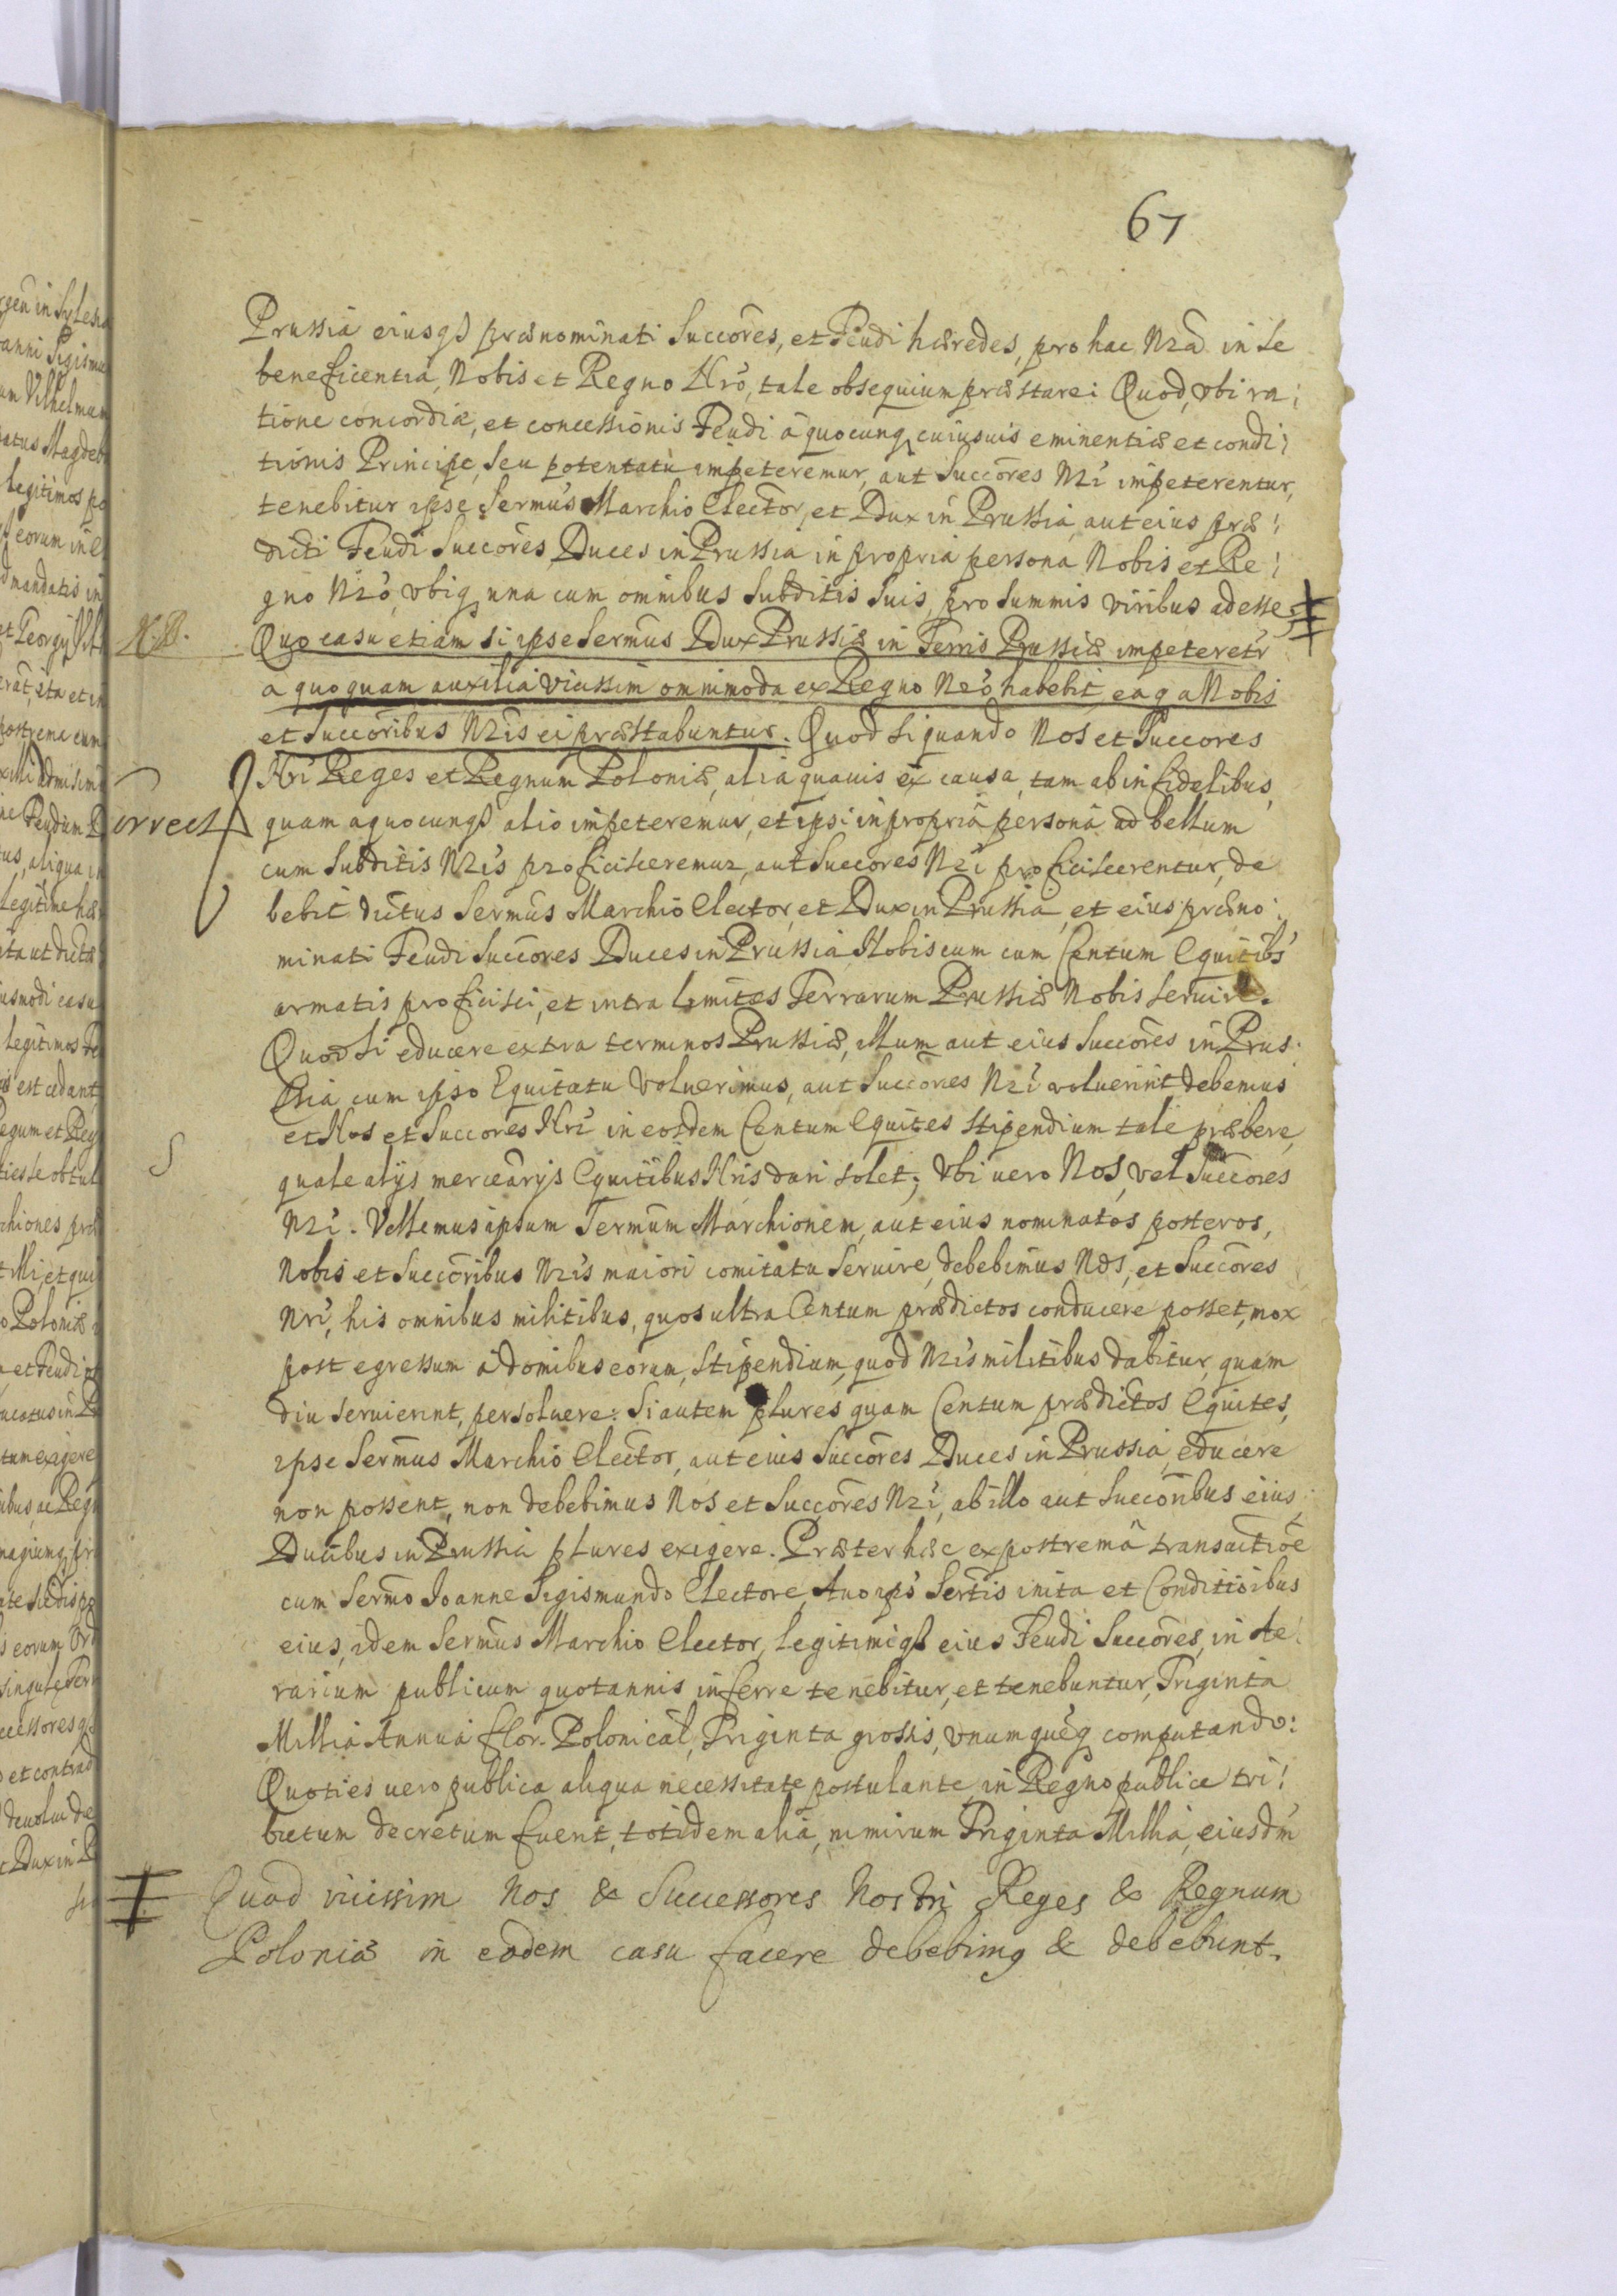 67
Prussia eiusqȝ prænominati Succores, et Feudi hæredes, pro hac Nra in se
beneficentia, Nobis et Regno Nro, tale obsequium præstare: Quod, vbi ra:
tione concordiæ, et concessionis Feudi a quocunq cuiusuis eminentiæ et condi:
tionis Principe, seu potentatu impeteremur, aut Succores Nri impeterentur,
tenebitur ipse Sermus Marchio Elector, et Dux in Prussia, aut eius præ:
dicti Feudi Succores Duces in Prussia in propria persona Nobis et Re:
gno Nro, vbiq una cum omnibus Subditis Suis, pro summis viribus adesse.
N.B. Quo casu etiam si ipse Sermus Dux Prussiæ in Terris Prussiæ impeteretr
a quoquam auxilia vicissim omnimoda ex Regno Nro habebit, eaq a Nobis
et Succoribus Nris ei præstabuntur. Quod si quando Nos et Succores
Nri Reges et Regnum Poloniæ, alia quauis ex causa, tam ab infidelibus,
Correct quam a quocunqȝ alio impeteremur, et ipsi in propria persona ad bellum
cum Subditis Nris proficisceremur, aut Succores Nri proficiscerentur, de
bebit dictus Sermus Marchio Elector, et Dux in Prussia, et eius præno:
minati Feudi Succores Duces in Prussia Nobiscum cum Centum Equitibs
armatis proficisci, et intra limites Terrarum Prussiæ Nobis seruire.
Quod si educere extra terminos Prussiæ, illum aut eius Succores in Prus:
sia cum ipso Equitatu voluerimus, aut Succores Nri voluerint debemus
et Nos et Succores Nri in eosdem Centum Equites stipendium tale præbere,
quale alijs mercearijs Equitibus Nris dari solet; Vbi uero Nos, vel Succores
Nri. Vellemus ipsum Sermum Marchionem, aut eius nominatos posteros,
Nobis et Succoribus Nris maiori comitatu seruire, debebimus Nos, et Succores
Nri, his omnibus militibus, quos ultra Centum prædictos conducere posset, mox
post egressum a domibus eorum, Stipendium, quod Nris militibus dabitur, quam
diu seruierint, persoluere. Si autem plures quam Centum prædictos Equites,
ipse Sermus Marchio Elector, aut eius Succores Duces in Prussia, educere
non possent, non debebimus Nos et Succores Nri, ab illo aut Succoribus eius
Ducibus in Prussia plures exigere. Præter hæc ex postrema transactioe
cum Sermo Joanne Sigismundo Electore, Auo ips Sertis inita et Conditioibus
eius, idem Sermus Marchio Elector, legitimiqȝ eius Feudi Succores, in Ae:
rarium publicum quotannis inferre tenebitur, et tenebuntur, Triginta
Millia Annua flor. Polonical, Triginta grossis, vnumqueq computando:
Quoties uero publica aliqua necessitate postulante, in Regno publice tri:
butum decretum fuerit, totidem alia, nimirum Triginta Millia, eiusdm
Quod vicissim Nos & Successores Nostri Reges & Regnum
Poloniæ in eodem casu facere debebimq & debebunt.